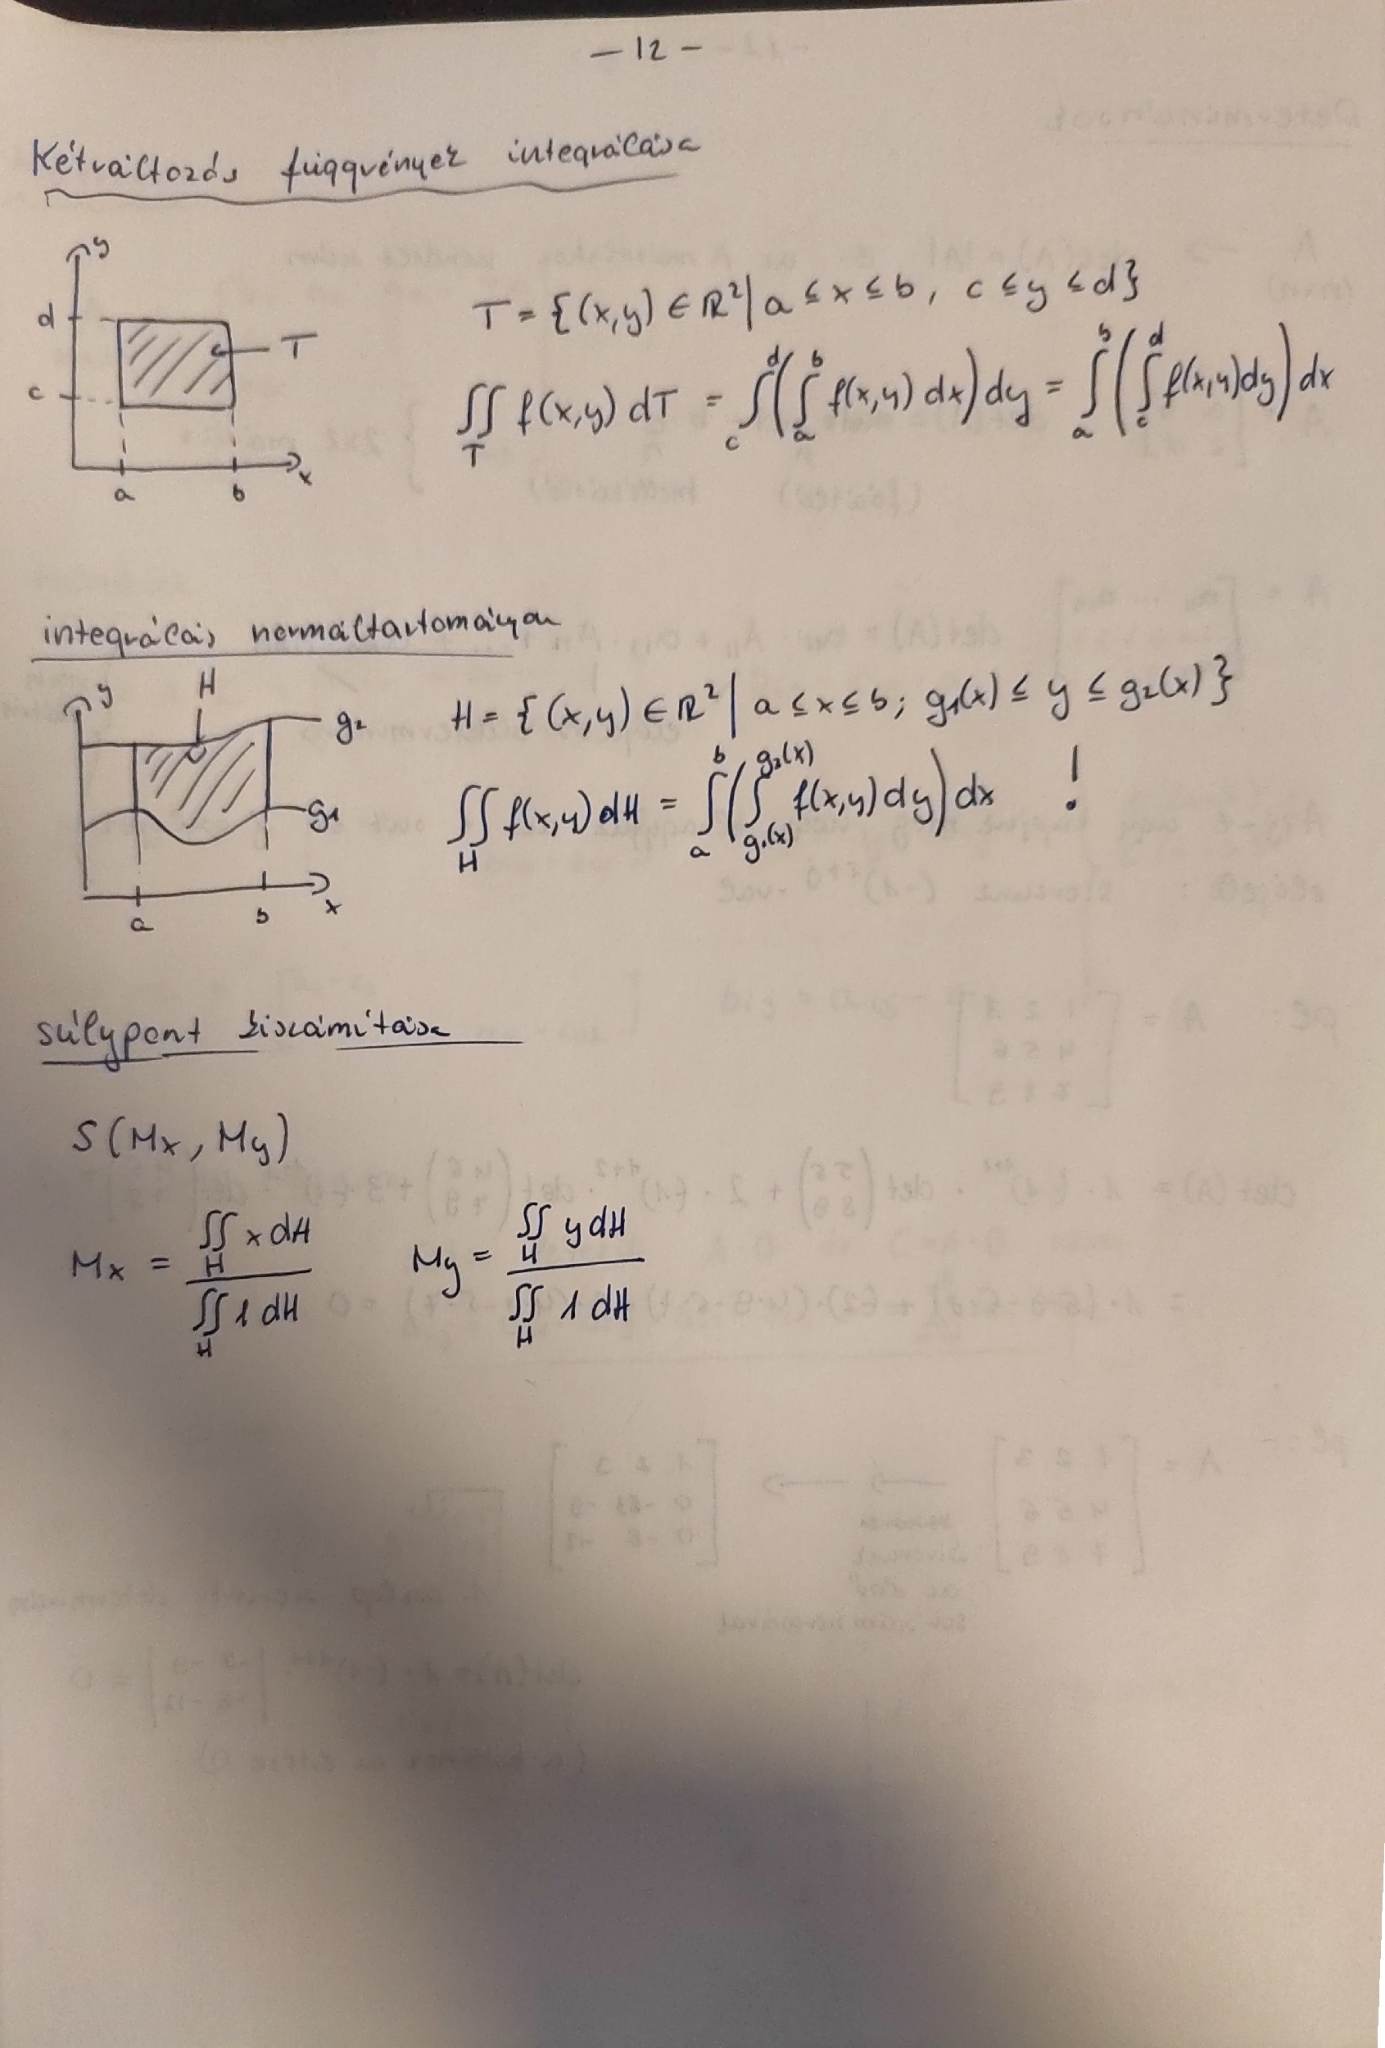 – 12 –
Kétváltozós függvények integrálása
y
d
c
T
a
b
x
T = {(x,y) ∈ ℝ² | a ≤ x ≤ b, c ≤ y ≤ d}
∬_T f(x,y) dT = ∫_c^d (∫_a^b f(x,y) dx) dy = ∫_a^b (∫_c^d f(x,y) dy) dx
integrálás normáltartományon
y
H
g₂
g₁
a
b
x
H = {(x,y) ∈ ℝ² | a ≤ x ≤ b; g₁(x) ≤ y ≤ g₂(x)}
∬_H f(x,y) dH = ∫_a^b (∫_{g₁(x)}^{g₂(x)} f(x,y) dy) dx !
súlypont kiszámítása
S(Mx, My)
Mx = ∬_H x dH / ∬_H 1 dH My = ∬_H y dH / ∬_H 1 dH